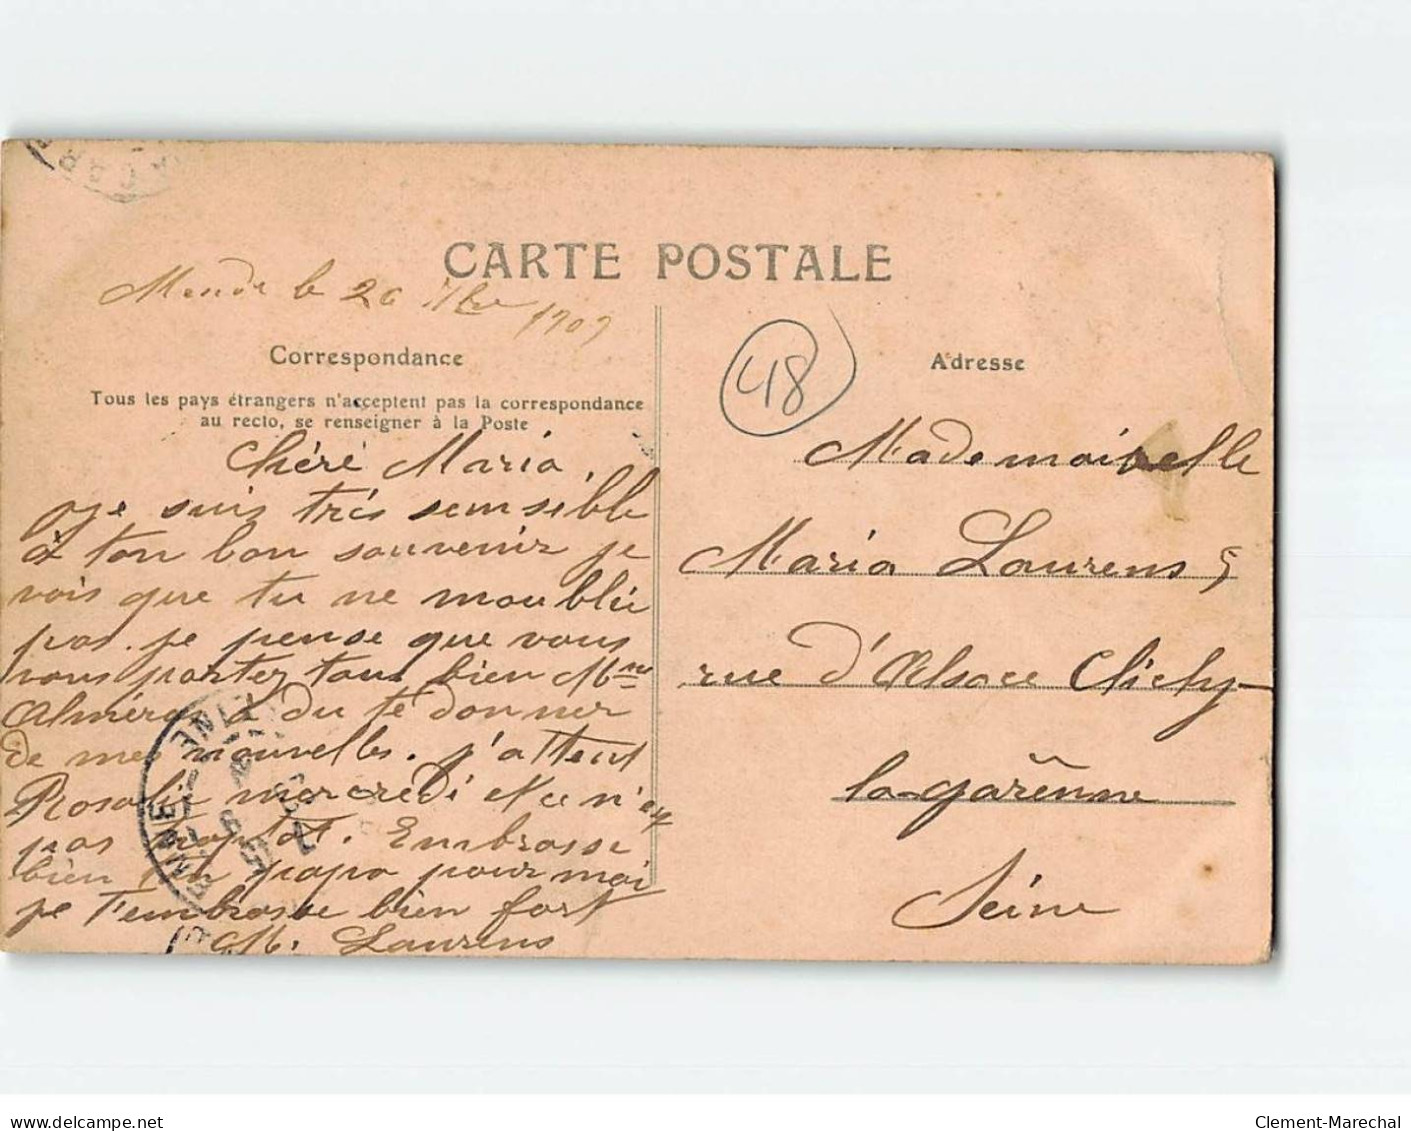 CARTE POSTALE
Mende le 26 7bre
1907
Correspondance
Tous les pays étrangers n'acceptent pas la correspondance
au recto, se renseigner à la Poste
Chéré Maria,
Je suis très semsible
à ton bon souvenir je
vois que tu ne moublie
pas. je pense que vous
vous portez tous bien Mme
Alméra a du te donner
de mes nouvelles. j'attent
Rosalie mercredi et ce n'est
pas trop tot. Embrasse
bien ton papa pour moi
je t'embrasse bien fort
M. Laurens
48
Adresse
Mademoiselle
Maria Laurens 5
rue d'Alsace Clichy
la garenne
Seine
Clement-Marechal
www.delcampe.net